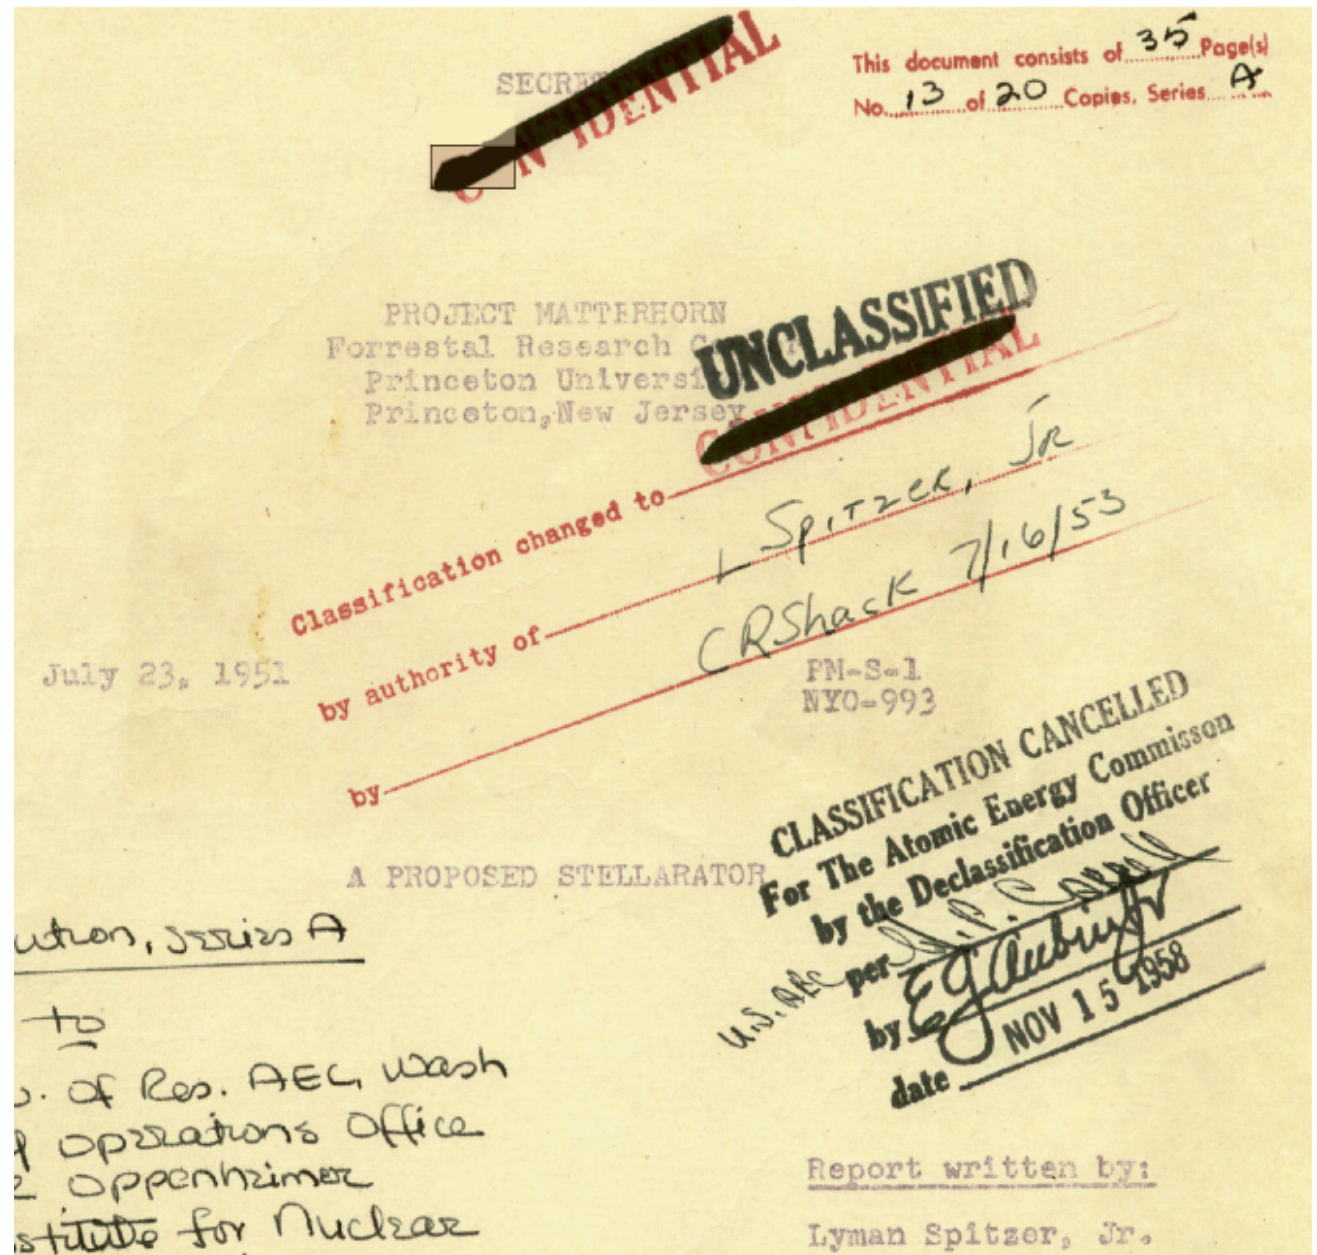 SECRET
CONFIDENTIAL
This document consists of 35 Page(s)
No. 13 of 20 Copies, Series A
PROJECT MATTERHORN
Forrestal Research
Princeton Universi
Princeton, New Jersey
UNCLASSIFIED
CONFIDENTIAL
Classification changed to
by authority of L Spitzer, Jr
by CRShack 7/16/53
July 23, 1951
PM-S-1
NYO-993
A PROPOSED STELLARATOR
CLASSIFICATION CANCELLED
For The Atomic Energy Commisson
by the Declassification Officer
U.S. AEC per
by
NOV 15 1958
date
ution, Series A
to
of Res. AEC, Wash
Operations Office
Oppenheimer
stitute for Nuclear
Report written by:
Lyman Spitzer, Jr.